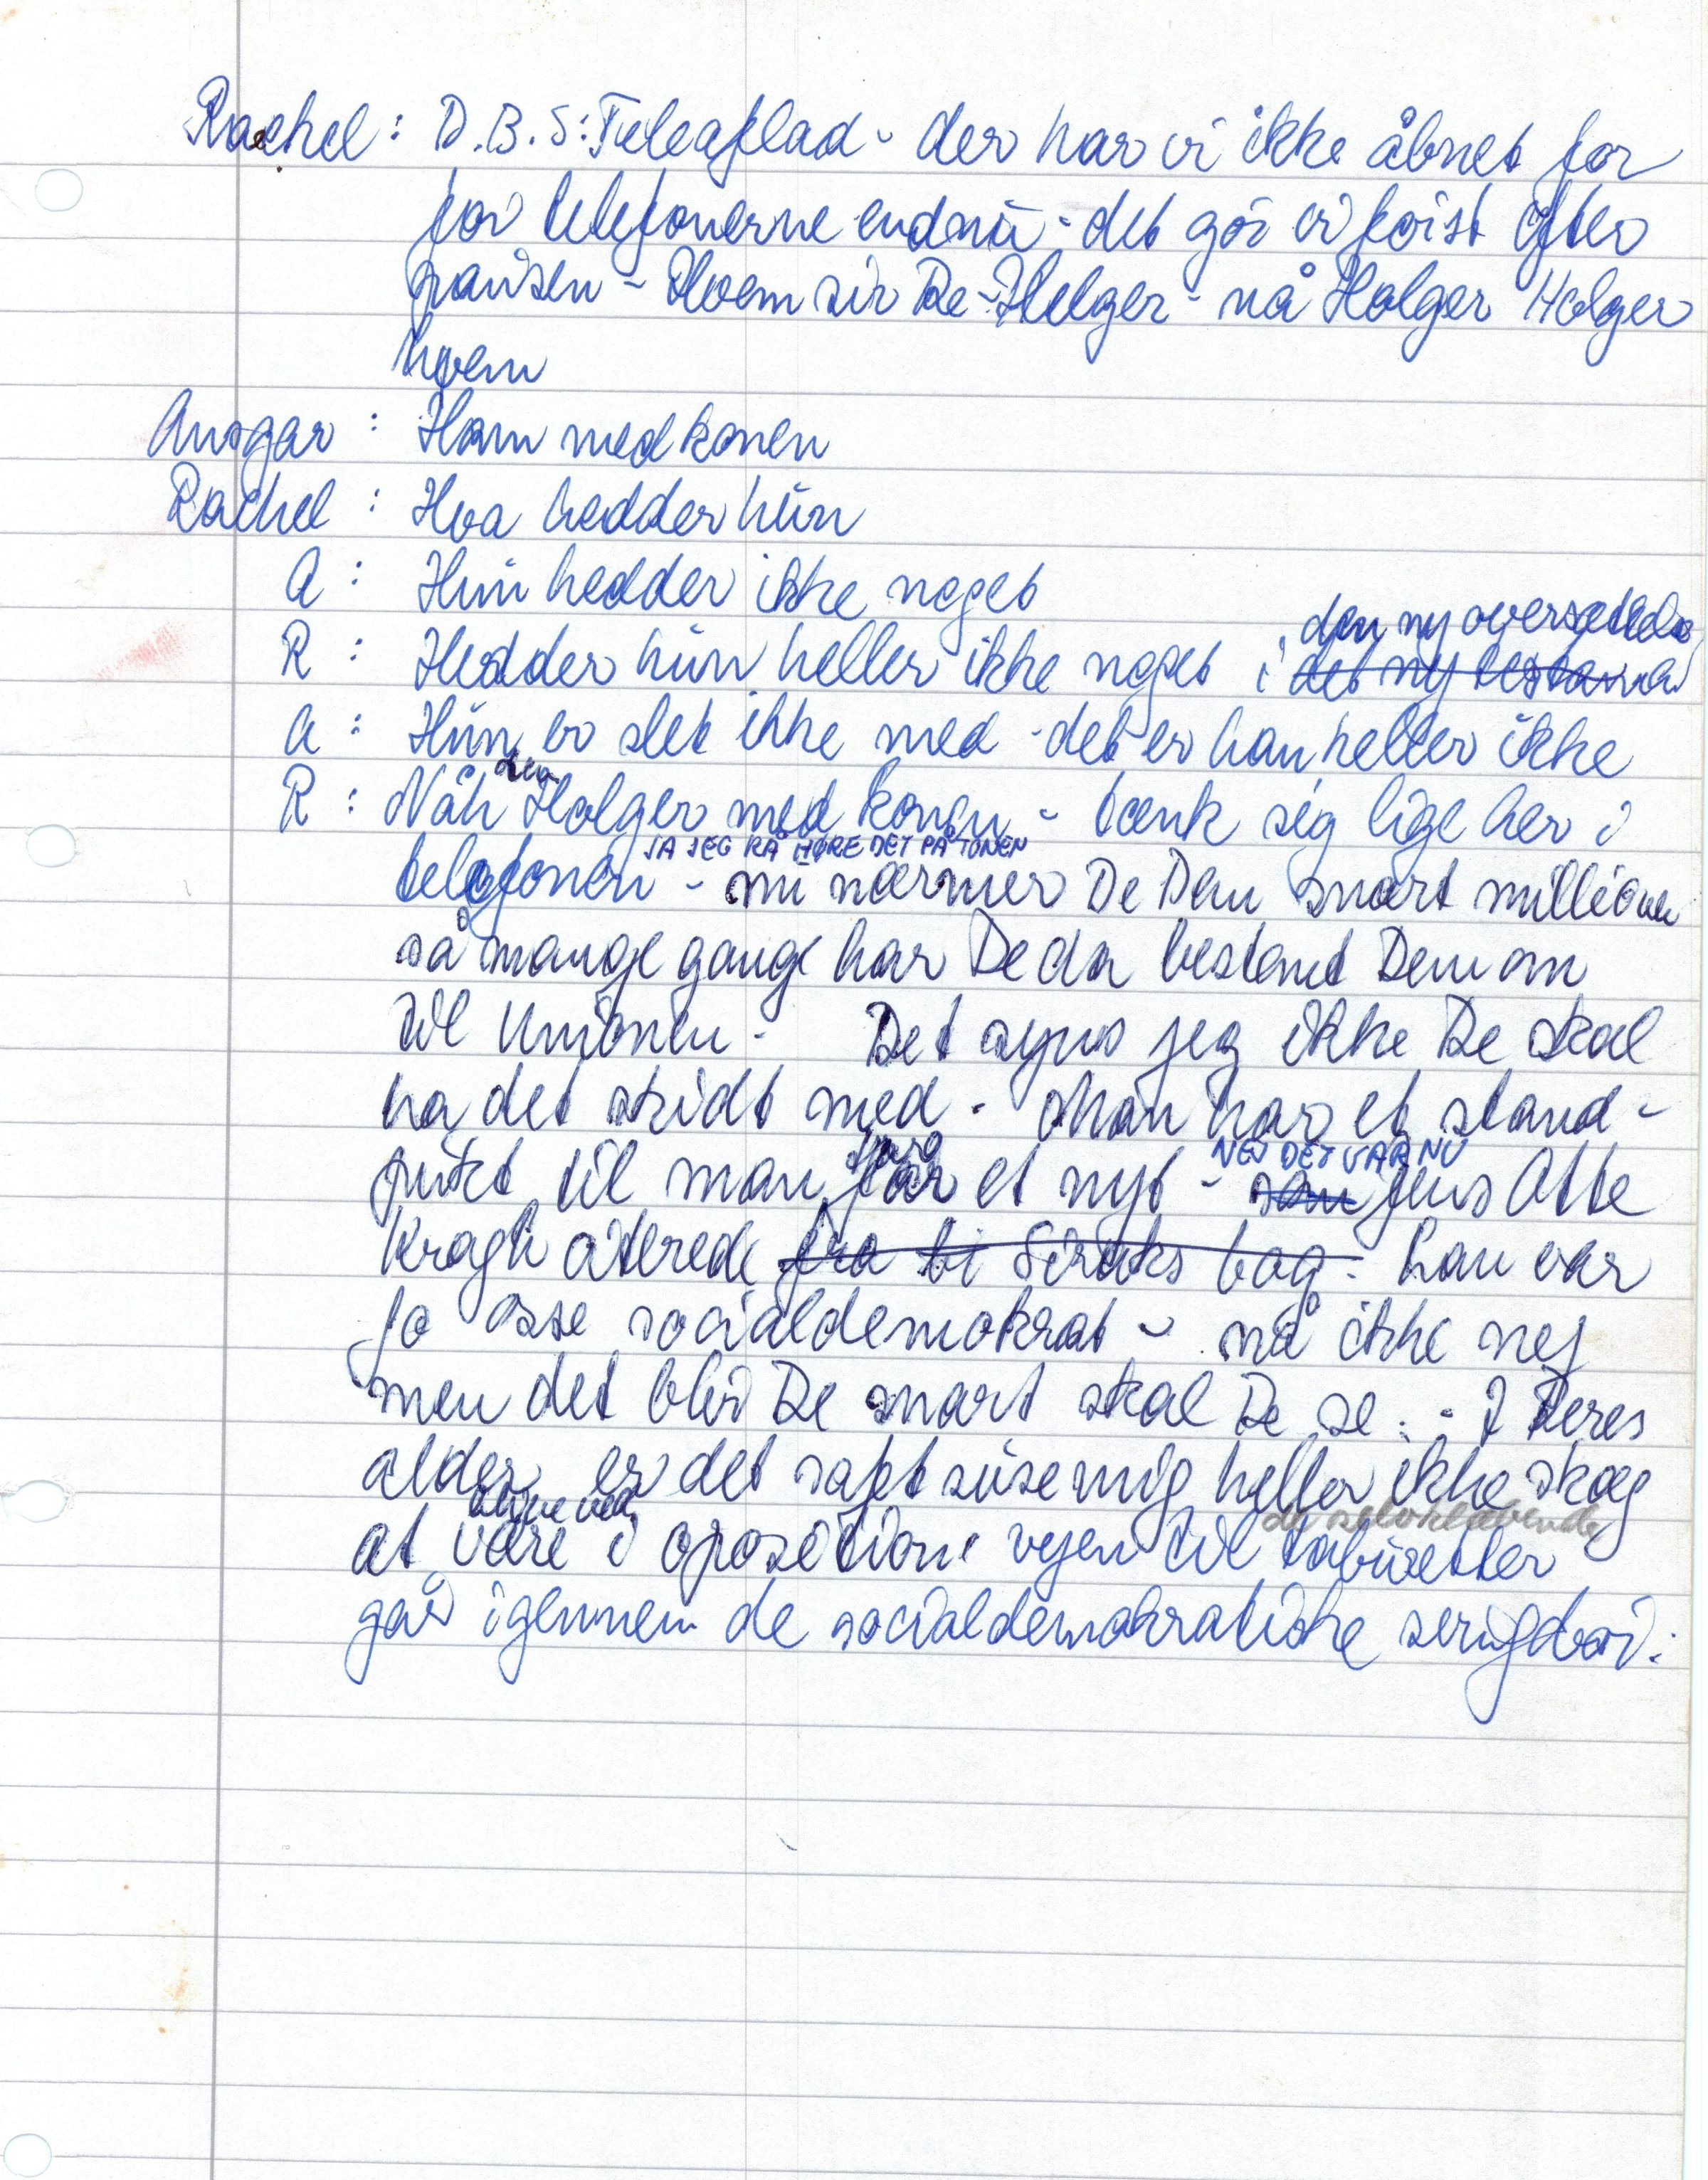 Rachel: D.B.S: Teleaflad - der har vi ikke åbnet for
for telefonerne endnu - det gør vi først efter
pausen - Hvem sir De - Helger - nå Holger Holger
hvem
Ansgar: Ham med konen
Rachel: Hva hedder hun
A: Hun hedder ikke noget
den ny oversættelse
R: Hedder hun heller ikke noget i det ny testama
A: Hun er slet ikke med - det er han heller ikke
den
R: Nåh Holger med konen - tænk sig lige her i
JA JEG KA HØRE DET PÅ TONEN
telefonen - nu nærmer De Dem snart millionen
så mange gange har De da bestemt Dem om
til Unionen - Det synes jeg ikke De skal
ha det skidt med - Man har et stand-
NEJ DET VAR NU
punkt til man får et nyt - som Jens Otto
Kragh allerede fra bi Siraks bog - han var
jo osse socialdemokrat - nå ikke nej
men det blir De snart skal De se - I Deres
alder er det saft suse mig heller ikke skæg
blive ved de selvklæbende
at være i oposition. vejen til taburetter
går igennem de socialdemokratiske svingdør.